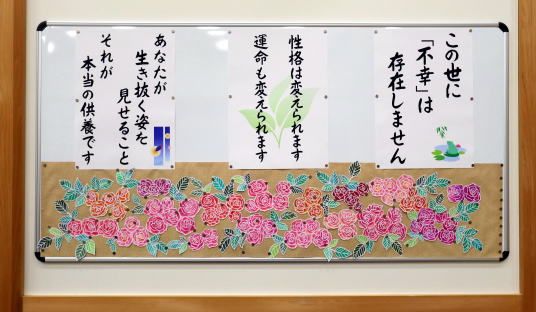 この世に
「不幸」は
存在しません
性格は変えられます
運命も変えられます
あなたが
生き抜く姿を
見せること
それが
本当の供養です